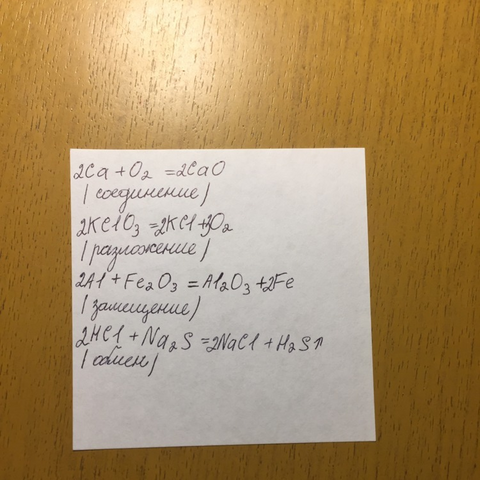 2Ca + O₂ = 2CaO
/соединение/
2KClO₃ = 2KCl + 3O₂
/разложение/
2Al + Fe₂O₃ = Al₂O₃ + 2Fe
/замещение/
2HCl + Na₂S = 2NaCl + H₂S↑
/обмен/